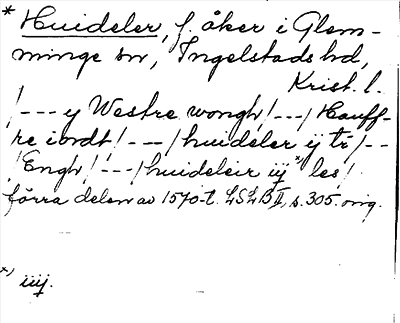 * Huideler, f. åker i Glem-
minge sn, Ingelstads hd,
Krist. l.
/---y Westre wongh/---/Hauff-
re iordt/---/huideler ÿ tr/--
/Engh/---/huideleir iÿ*) les/
förra delen av 1570-t. LSLB II, s. 305. orig.
*) iiÿ.